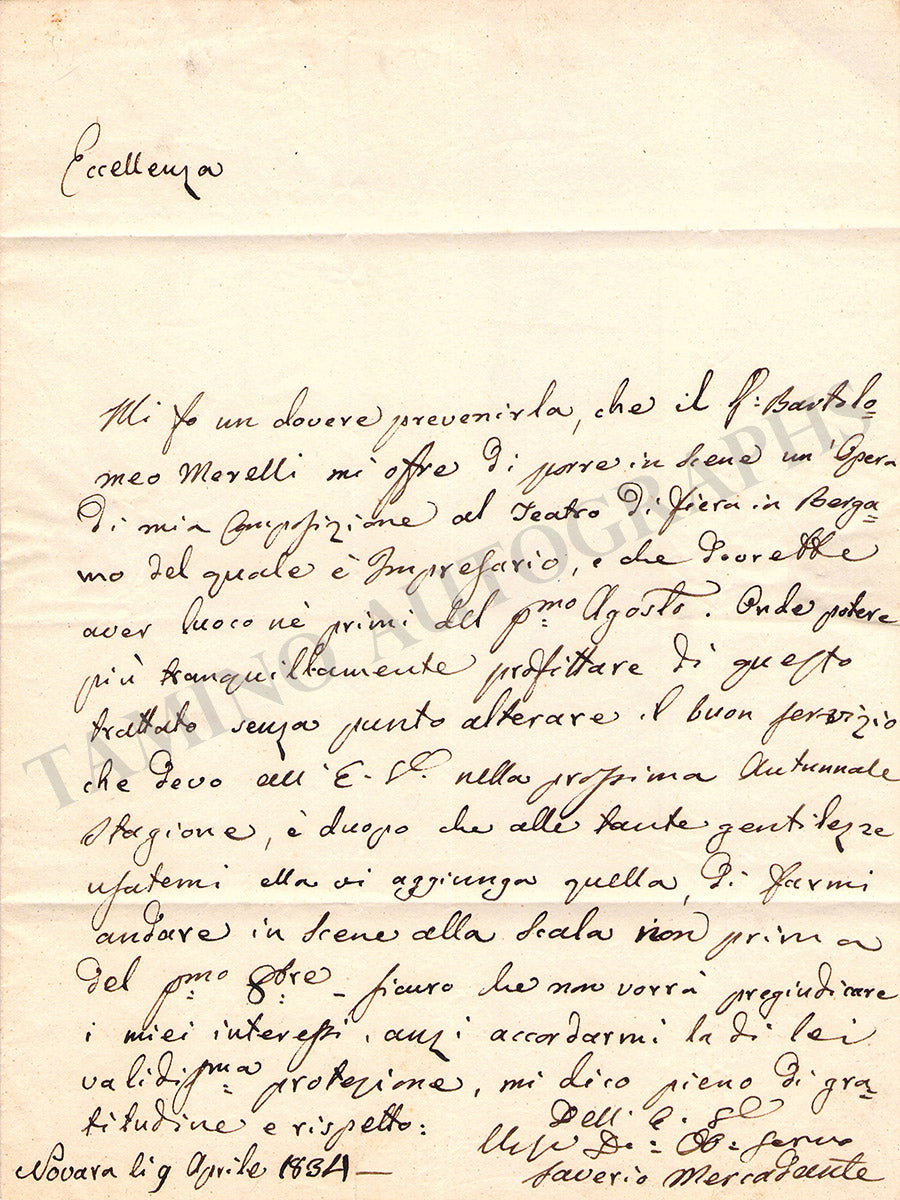 Eccellenza
Mi fo un dovere prevenirla, che il Sr: Bartolo=
meo Merelli mi offre di porre in scene un' Opera
di mia Composizione al Teatro di fiera in Berga=
mo del quale è Impresario, e che dovrebbe
aver luoco nè primi del pmo Agosto. Onde potere
più tranquillamente profittare di questo
trattato senza punto alterare il buon servizio
che devo all' E. Va. nella prossima Autunnale
Stagione, è duopo che alle tante gentilezze
usatemi ella vi aggiunga quella, di farmi
andare in scene alla Scala non prima
del pmo 8bre – sicuro che non vorrà pregiudicare
i miei interessi, anzi accordarmi la di lei
validissma protezione, mi dico pieno di gra=
titudine e rispetto:
Dell' E. Va
Di: Ob: Servo
Novara li 9 Aprile 1834 —
Saverio Mercadante
TAMINO AUTOGRAPHS